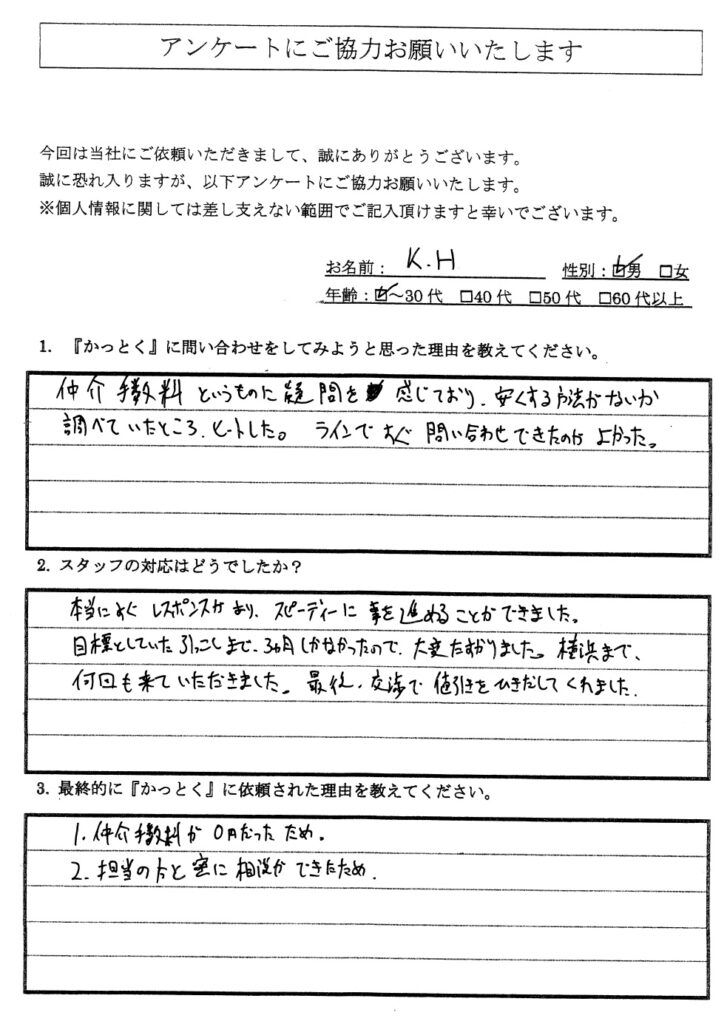 アンケートにご協力お願いいたします
今回は当社にご依頼いただきまして、誠にありがとうございます。
誠に恐れ入りますが、以下アンケートにご協力お願いいたします。
※個人情報に関しては差し支えない範囲でご記入頂けますと幸いでございます。
お名前： K.H 性別：☑男 □女
年齢：☑～30代 □40代 □50代 □60代以上
1. 『かっとく』に問い合わせをしてみようと思った理由を教えてください。
仲介手数料というものに疑問を感じており、安くする方法がないか
調べていたところ、ヒットした。 ラインですぐ問い合わせできたのがよかった。
2. スタッフの対応はどうでしたか？
本当にすぐレスポンスがあり、スピーディーに事を進めることができました。
目標としていた引っこしまで、3ヵ月しかなかったので、大変たすかりました。横浜まで、
何回も来ていただきました。最後、交渉で値引きをひきだしてくれました。
3. 最終的に『かっとく』に依頼された理由を教えてください。
1. 仲介手数料が0円だったため。
2. 担当の方と密に相談ができたため.